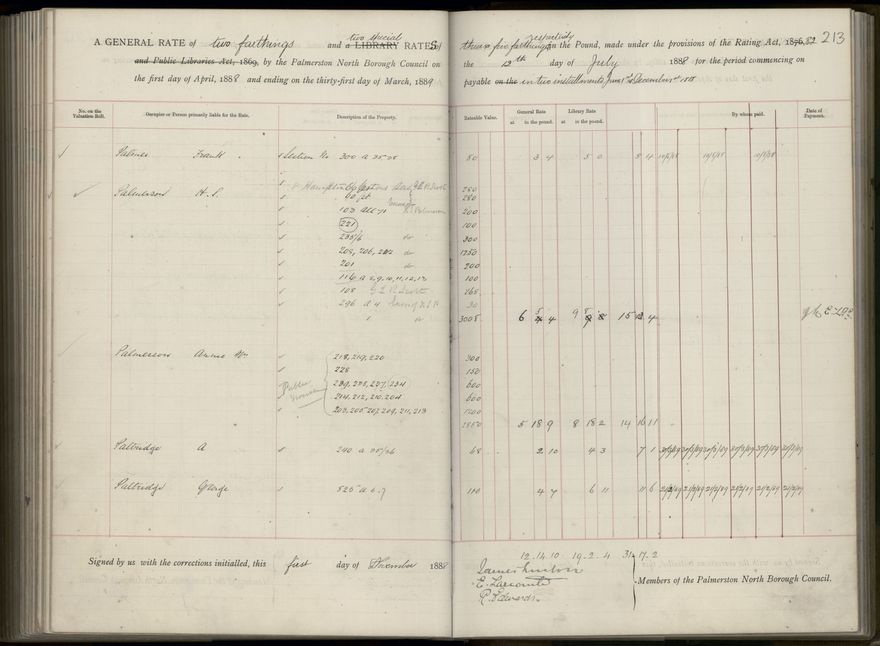 213
A GENERAL RATE of two farthings and a LIBRARY two special RATES of
and Public Libraries Act, 1869, by the Palmerston North Borough Council on
the first day of April, 1888 and ending on the thirty-first day of March, 1889
three & five farthings respectively in the Pound, made under the provisions of the Rating Act, 1876, 82
the 12th day of July 1888 for the period commencing on
payable on the in two instalments June 1st & December 1st
No. on the Valuation Roll.
Occupier or Person primarily liable for the Rate.
Description of the Property.
Rateable Value.
General Rate at in the pound.
Library Rate at in the pound.
By whom paid.
Date of Payment.
Palmer Frank Section No 300 a 25/28 50 3 4 5 0 8 4
Palmerson H. S. 250
90 pt 280
103 All 71 200
221 100
235/6 do 300
208, 206, 202 do 1250
201 do 200
116 a 8, 9, 10, 11, 12, 13 100
108 G. L. R. Scott 268
296 a 4 30
do 3008 6 5 4 9 8 15 4
Palmerson Annie Mrs 218, 219, 220 300
228 150
229, 228, 227, 234 600
Public 214, 212, 210, 204 600
203, 205, 207, 209, 211, 213 1200
2850 5 18 9 8 18 2 14 16 11
Paltridge A 240 a 25/26 68 2 10 4 3 7 1
Paltridge George 525 a 6.7 110 4 7 6 11 11 6
12.14.10 19.2.4 31.17.2
Signed by us with the corrections initialled, this first day of December 1888
James Linton
E. Larcomb
R. Edwards
Members of the Palmerston North Borough Council.